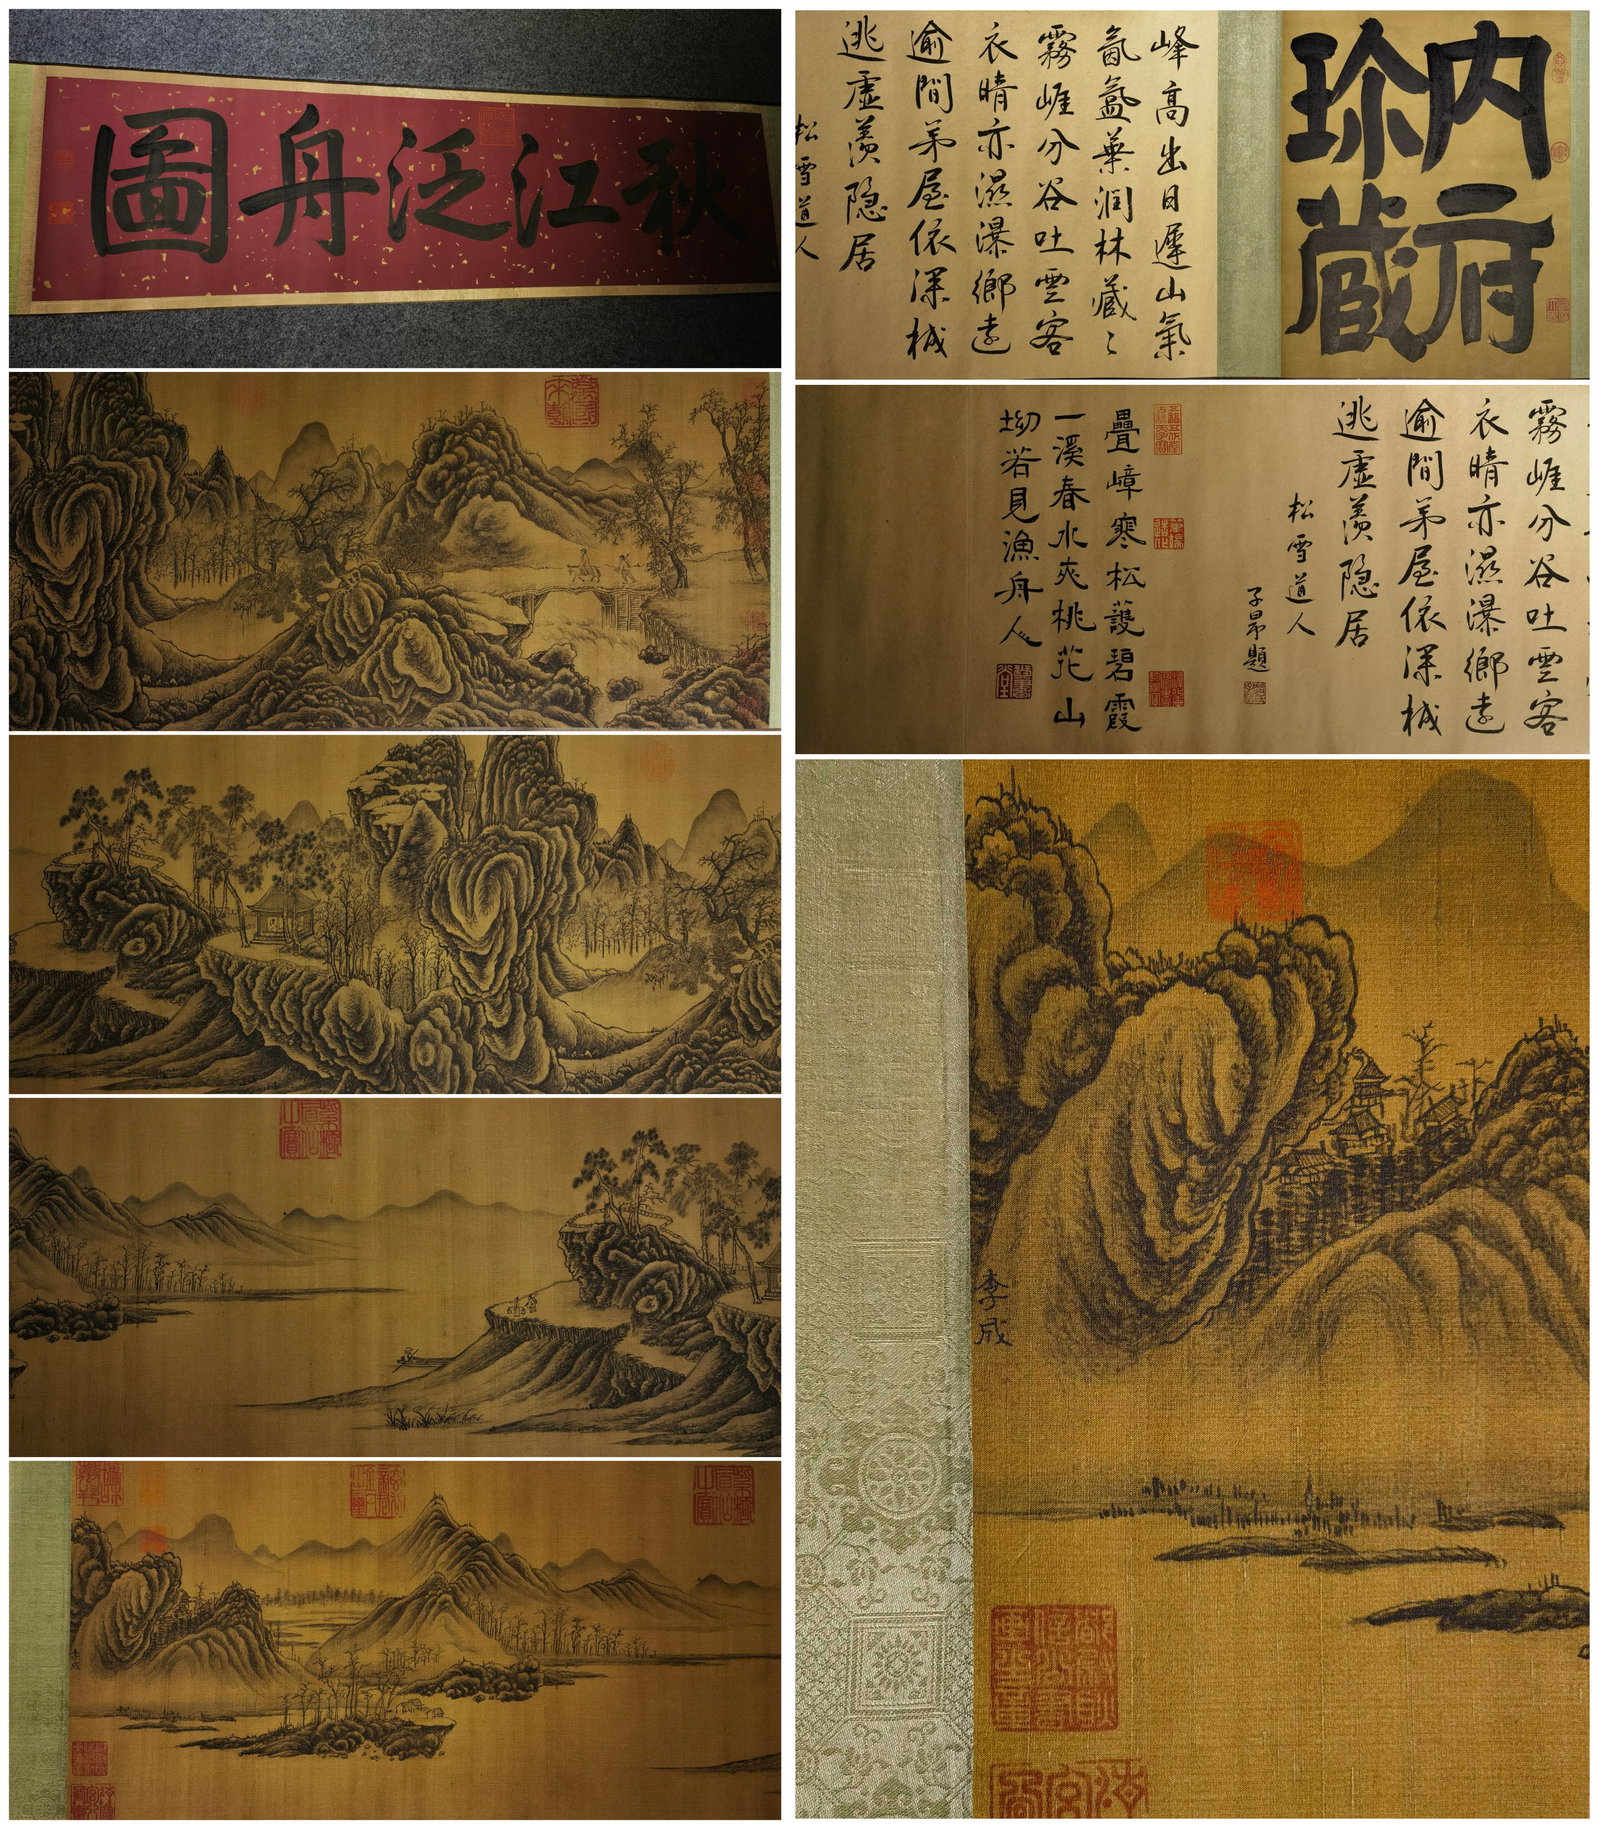 秋江泛舟圖
内府
珎蔵
峰高出日遲山氣
氤氳葉潤林藏〻
霧崕分谷吐雲客
衣晴亦濕瀑鄉遠
逾間弟屋依深械
逃虛羨隐居
松雪道人
霧崕分谷吐雲客
衣晴亦濕瀑鄉遠
逾間弟屋依深械
逃虛羨隐居
松雪道人
子昂題
疊嶂寒松護碧霞
一溪春水夾桃花山
坳若見漁舟人
李成